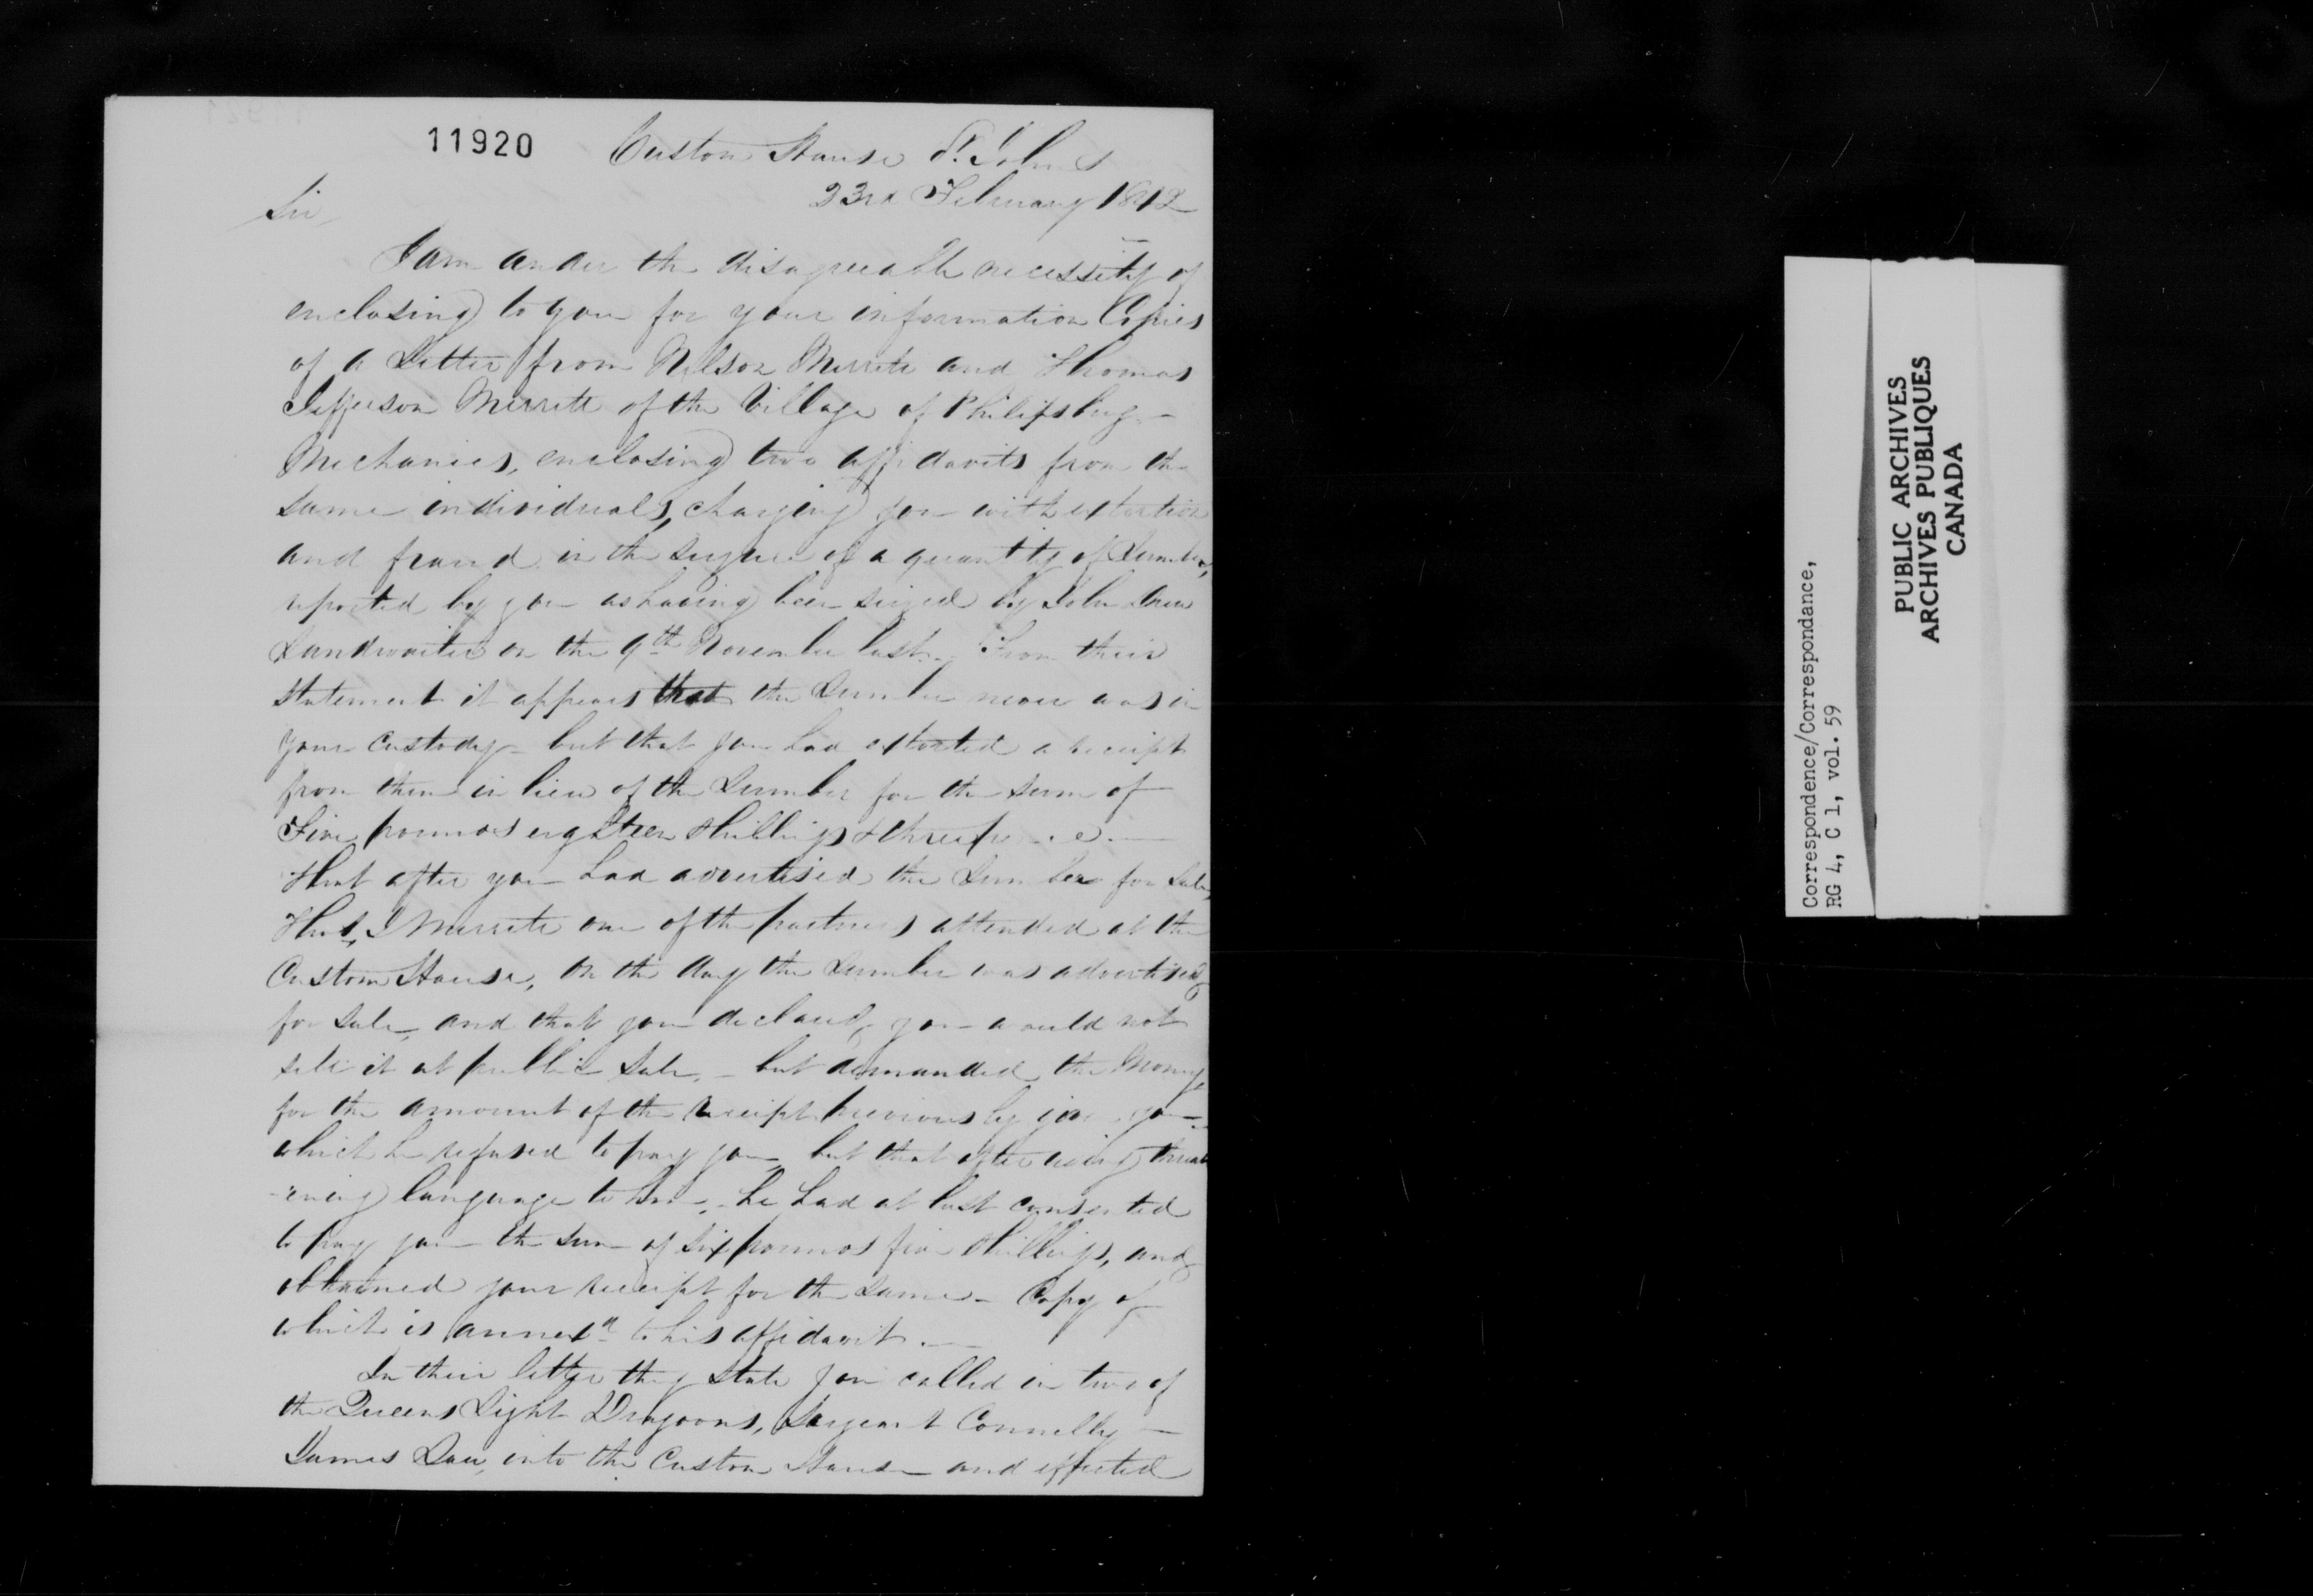 11920
Custom House St. Johns
23rd February 1842
Sir
I am under the disagreeable necessity of
enclosing to you for your information Copies
of a Letter from Nelson Merritt and Thomas
Jefferson Merritt of the Village of Philipsburg -
Mechanics, enclosing two affidavits from the
same individuals, charging you with extortion
and fraud in the seizure of a quantity of Lumber,
reported by you as having been seized by John
Landwaiter on the 9th November last. - From their
statement it appears that the Lumber never was in
your custody - but that you had extorted a receipt
from them in lieu of the Lumber for the sum of
Five pounds eighteen shillings & threepence. -
That after you had advertised the Lumber for sale,
Thos. J Merritt one of the partners attended at the
Custom House, on the day the Lumber was advertised
for sale, and that you declared, you would not
sell it at public sale, - but demanded the money
for the amount of the receipt previously given you -
which he refused to pay you, but that after using threat
-ening language to him, - he had at last consented
to pay you the sum of six pounds five shillings, and
obtained your receipt for the same - Copy of
which is annexd to his affidavit. -
In their letter they state you called in two of
the Queens Light Dragoons, Sergeant Connelly -
James into the Custom House - and effected
Correspondence/Correspondance,
RG 4, C 1, vol. 59
PUBLIC ARCHIVES
ARCHIVES PUBLIQUES
CANADA